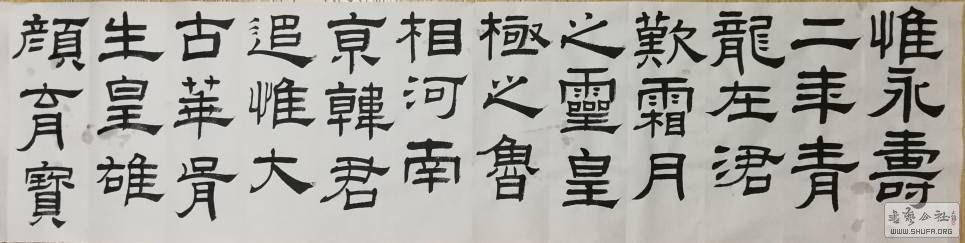 惟永壽
二年青
龍在涒
歎霜月
之靈皇
極之魯
相河南
京韓君
追惟大
古華胥
生皇雄
顏育寶
书艺公社
WWW.SHUFA.ORG